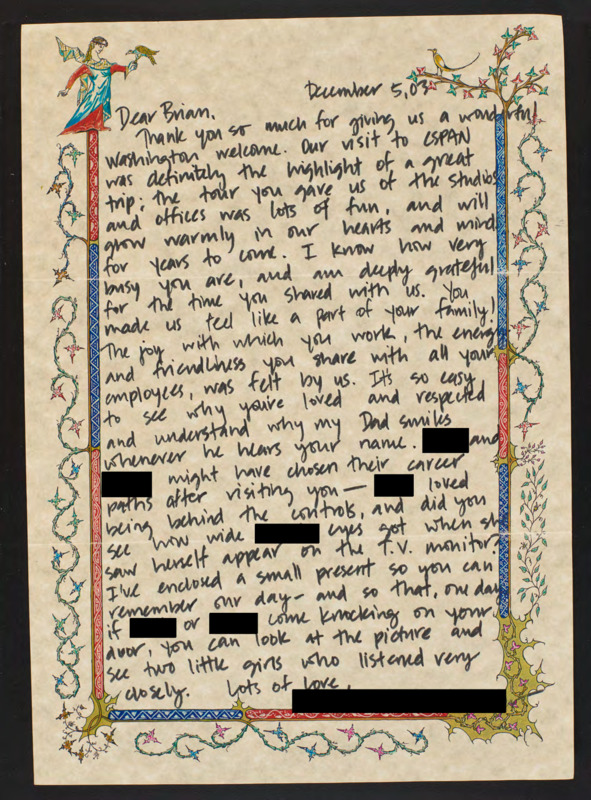 December 5, 03
Dear Brian,
Thank you so much for giving us a wonderful
Washington welcome. Our visit to CSPAN
was definitely the highlight of a great
trip; the tour you gave us of the studios
and offices was lots of fun, and will
grow warmly in our hearts and mind
for years to come. I know how very
busy you are, and am deeply grateful
for the time you shared with us. You
made us feel like a part of your family!
The joy with which you work, the energy
and friendliness you share with all your
employees, was felt by us. It's so easy
to see why you're loved and respected
and understand why my Dad smiles
whenever he hears your name. and
might have chosen their career
paths after visiting you — loved
being behind the controls, and did you
see how wide eyes got when she
saw herself appear on the T.V. monitor?
I've enclosed a small present so you can
remember our day - and so that, one day
if or come knocking on your
door, you can look at the picture and
see two little girls who listened very
closely. Lots of love,